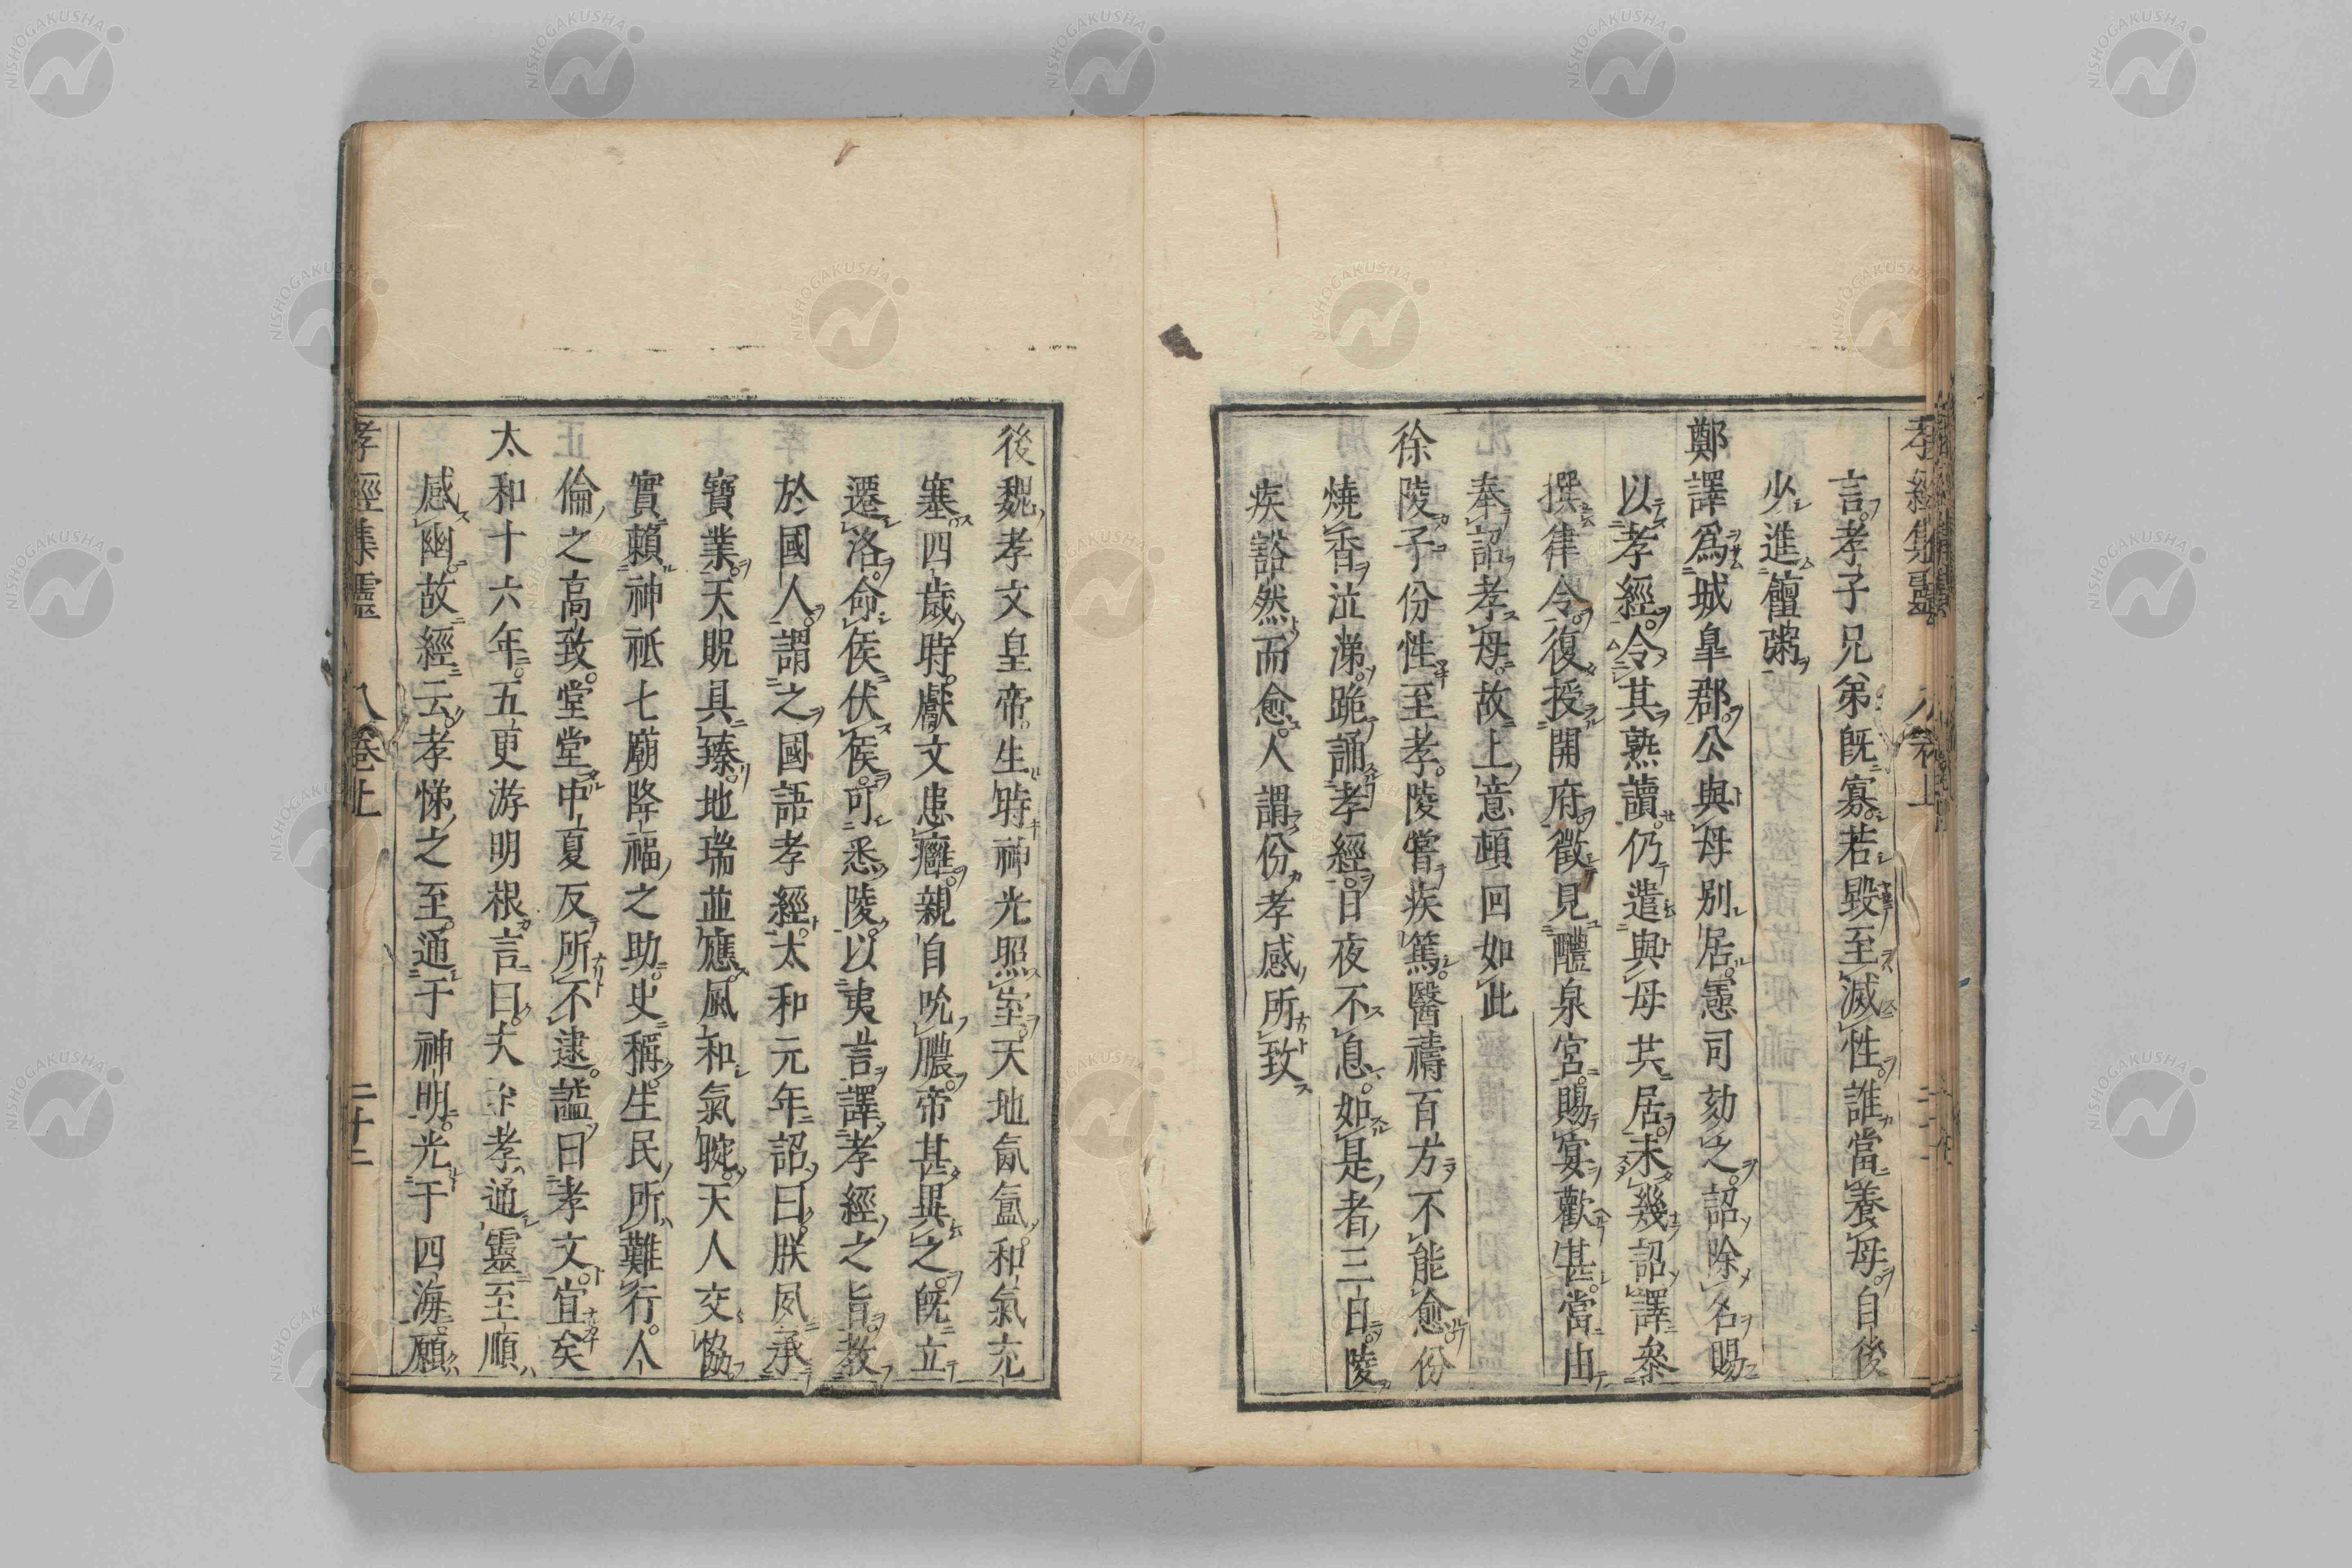 言孝子兄弟既寡若毀至滅性誰當養母自後
少進饘粥
鄭譯爲城皐郡公與母別居憲司劾之詔除名賜
以孝經令其熟讀仍遣與母共居未幾詔譯叅
撰律令復授開府徵見醴泉宮賜宴歡甚當由
奉詔孝母故上意頓回如此
徐陵子份性至孝陵嘗疾篤醫禱百方不能愈份
燒香泣涕跪誦孝經日夜不息如是者三日陵
疾豁然而愈人謂份孝感所致
後魏孝文皇帝生時神光照室天地氤氳和氣充
塞四歲時獻文患癰親自吮膿帝甚異之既立
遷洛命侯伏侯可悉陵以夷言譯孝經之旨教
於國人謂之國語孝經太和元年詔曰朕夙承
寶業天貺具臻地瑞並應風和氣晼天人交協
實賴神祇七廟降福之助史稱生民所難行人
倫之高致堂堂中夏反所不逮謚曰孝文宜矣
太和十六年五更游明根言曰夫至孝通靈至順
感幽故經云孝悌之至通于神明光于四海願
孝經集靈 八卷上 二十二
NISHOGAKUSHA